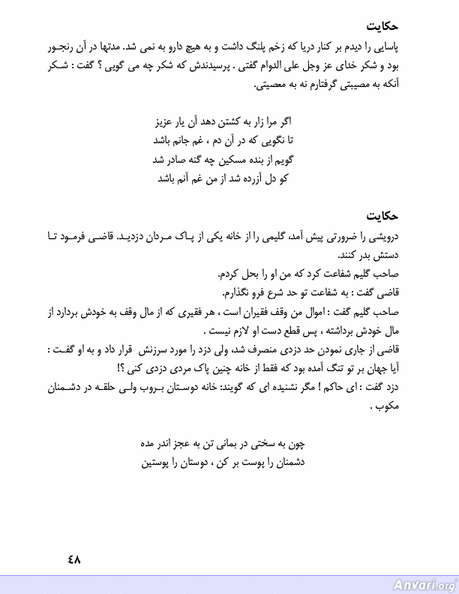 حکایت
پاسایی را دیدم بر کنار دریا که زخم پلنگ داشت و به هیچ دارو به نمی شد. مدتها در آن رنجور
بود و شکر خدای عز وجل علی الدوام گفتی . پرسیدندش که شکر چه می گویی ؟ گفت : شکر
آنکه به مصیبتی گرفتارم نه به معصیتی.
اگر مرا زار به کشتن دهد آن یار عزیز
تا نگویی که در آن دم ، غم جانم باشد
گویم از بنده مسکین چه گنه صادر شد
کو دل آزرده شد از من غم آنم باشد
حکایت
درویشی را ضرورتی پیش آمد، گلیمی را از خانه یکی از پاک مردان دزدید. قاضی فرمود تا
دستش بدر کنند.
صاحب گلیم شفاعت کرد که من او را بحل کردم.
قاضی گفت : به شفاعت تو حد شرع فرو نگذارم.
صاحب گلیم گفت : اموال من وقف فقیران است ، هر فقیری که از مال وقف به خودش بردارد از
مال خودش برداشته ، پس قطع دست او لازم نیست .
قاضی از جاری نمودن حد دزدی منصرف شد، ولی دزد را مورد سرزنش قرار داد و به او گفت :
آیا جهان بر تو تنگ آمده بود که فقط از خانه چنین پاک مردی دزدی کنی ؟!
دزد گفت : ای حاکم ! مگر نشنیده ای که گویند: خانه دوستان بروب ولی حلقه در دشمنان
مکوب .
چون به سختی در بمانی تن به عجز اندر مده
دشمنان را پوست بر کن ، دوستان را پوستین
۴۸
Anvari.org